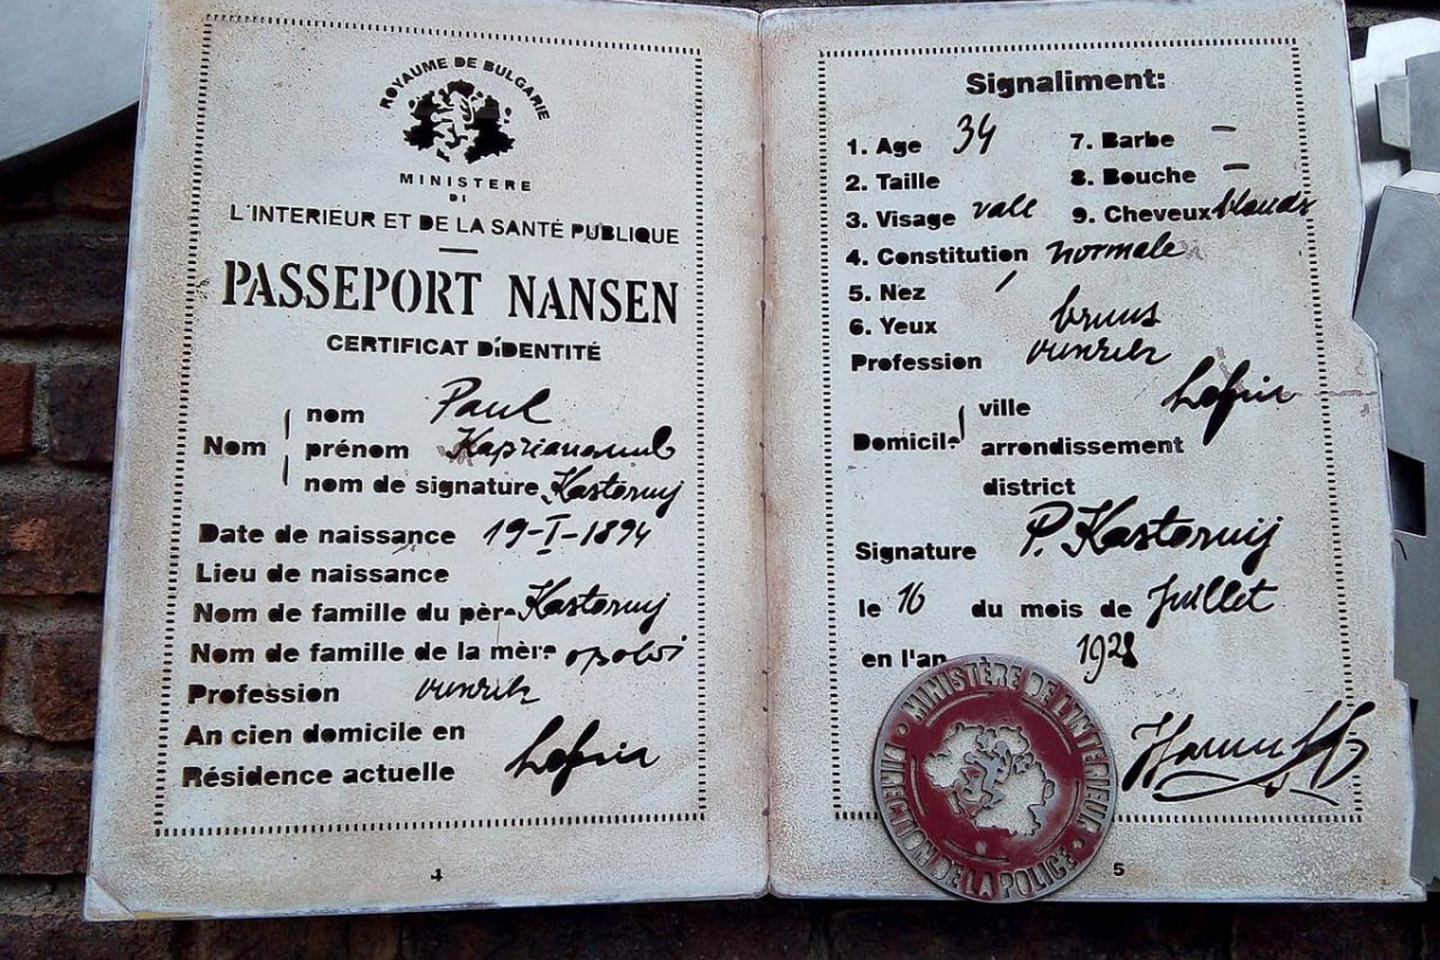 ROYAUME DE BULGARIE
MINISTERE
DI
L'INTERIEUR ET DE LA SANTÉ PUBLIQUE
PASSEPORT NANSEN
CERTIFICAT D'IDENTITÉ
nom Paul
Nom prénom
nom de signature Kasternij
Date de naissance 19-I-1894
Lieu de naissance
Nom de famille du père Kasternij
Nom de famille de la mère
Profession
An cien domicile en
Résidence actuelle
4
Signaliment:
1. Age 34
2. Taille
3. Visage vale
4. Constitution normale
5. Nez
6. Yeux bruns
7. Barbe -
8. Bouche -
9. Cheveux blonds
Profession
ville
Domicile arrondissement
district
Signature P. Kasternij
le 16 du mois de Juillet
en l'an 1928
MINISTÈRE DE L'INTERIEUR
DIRECTION DE LA POLICE
5